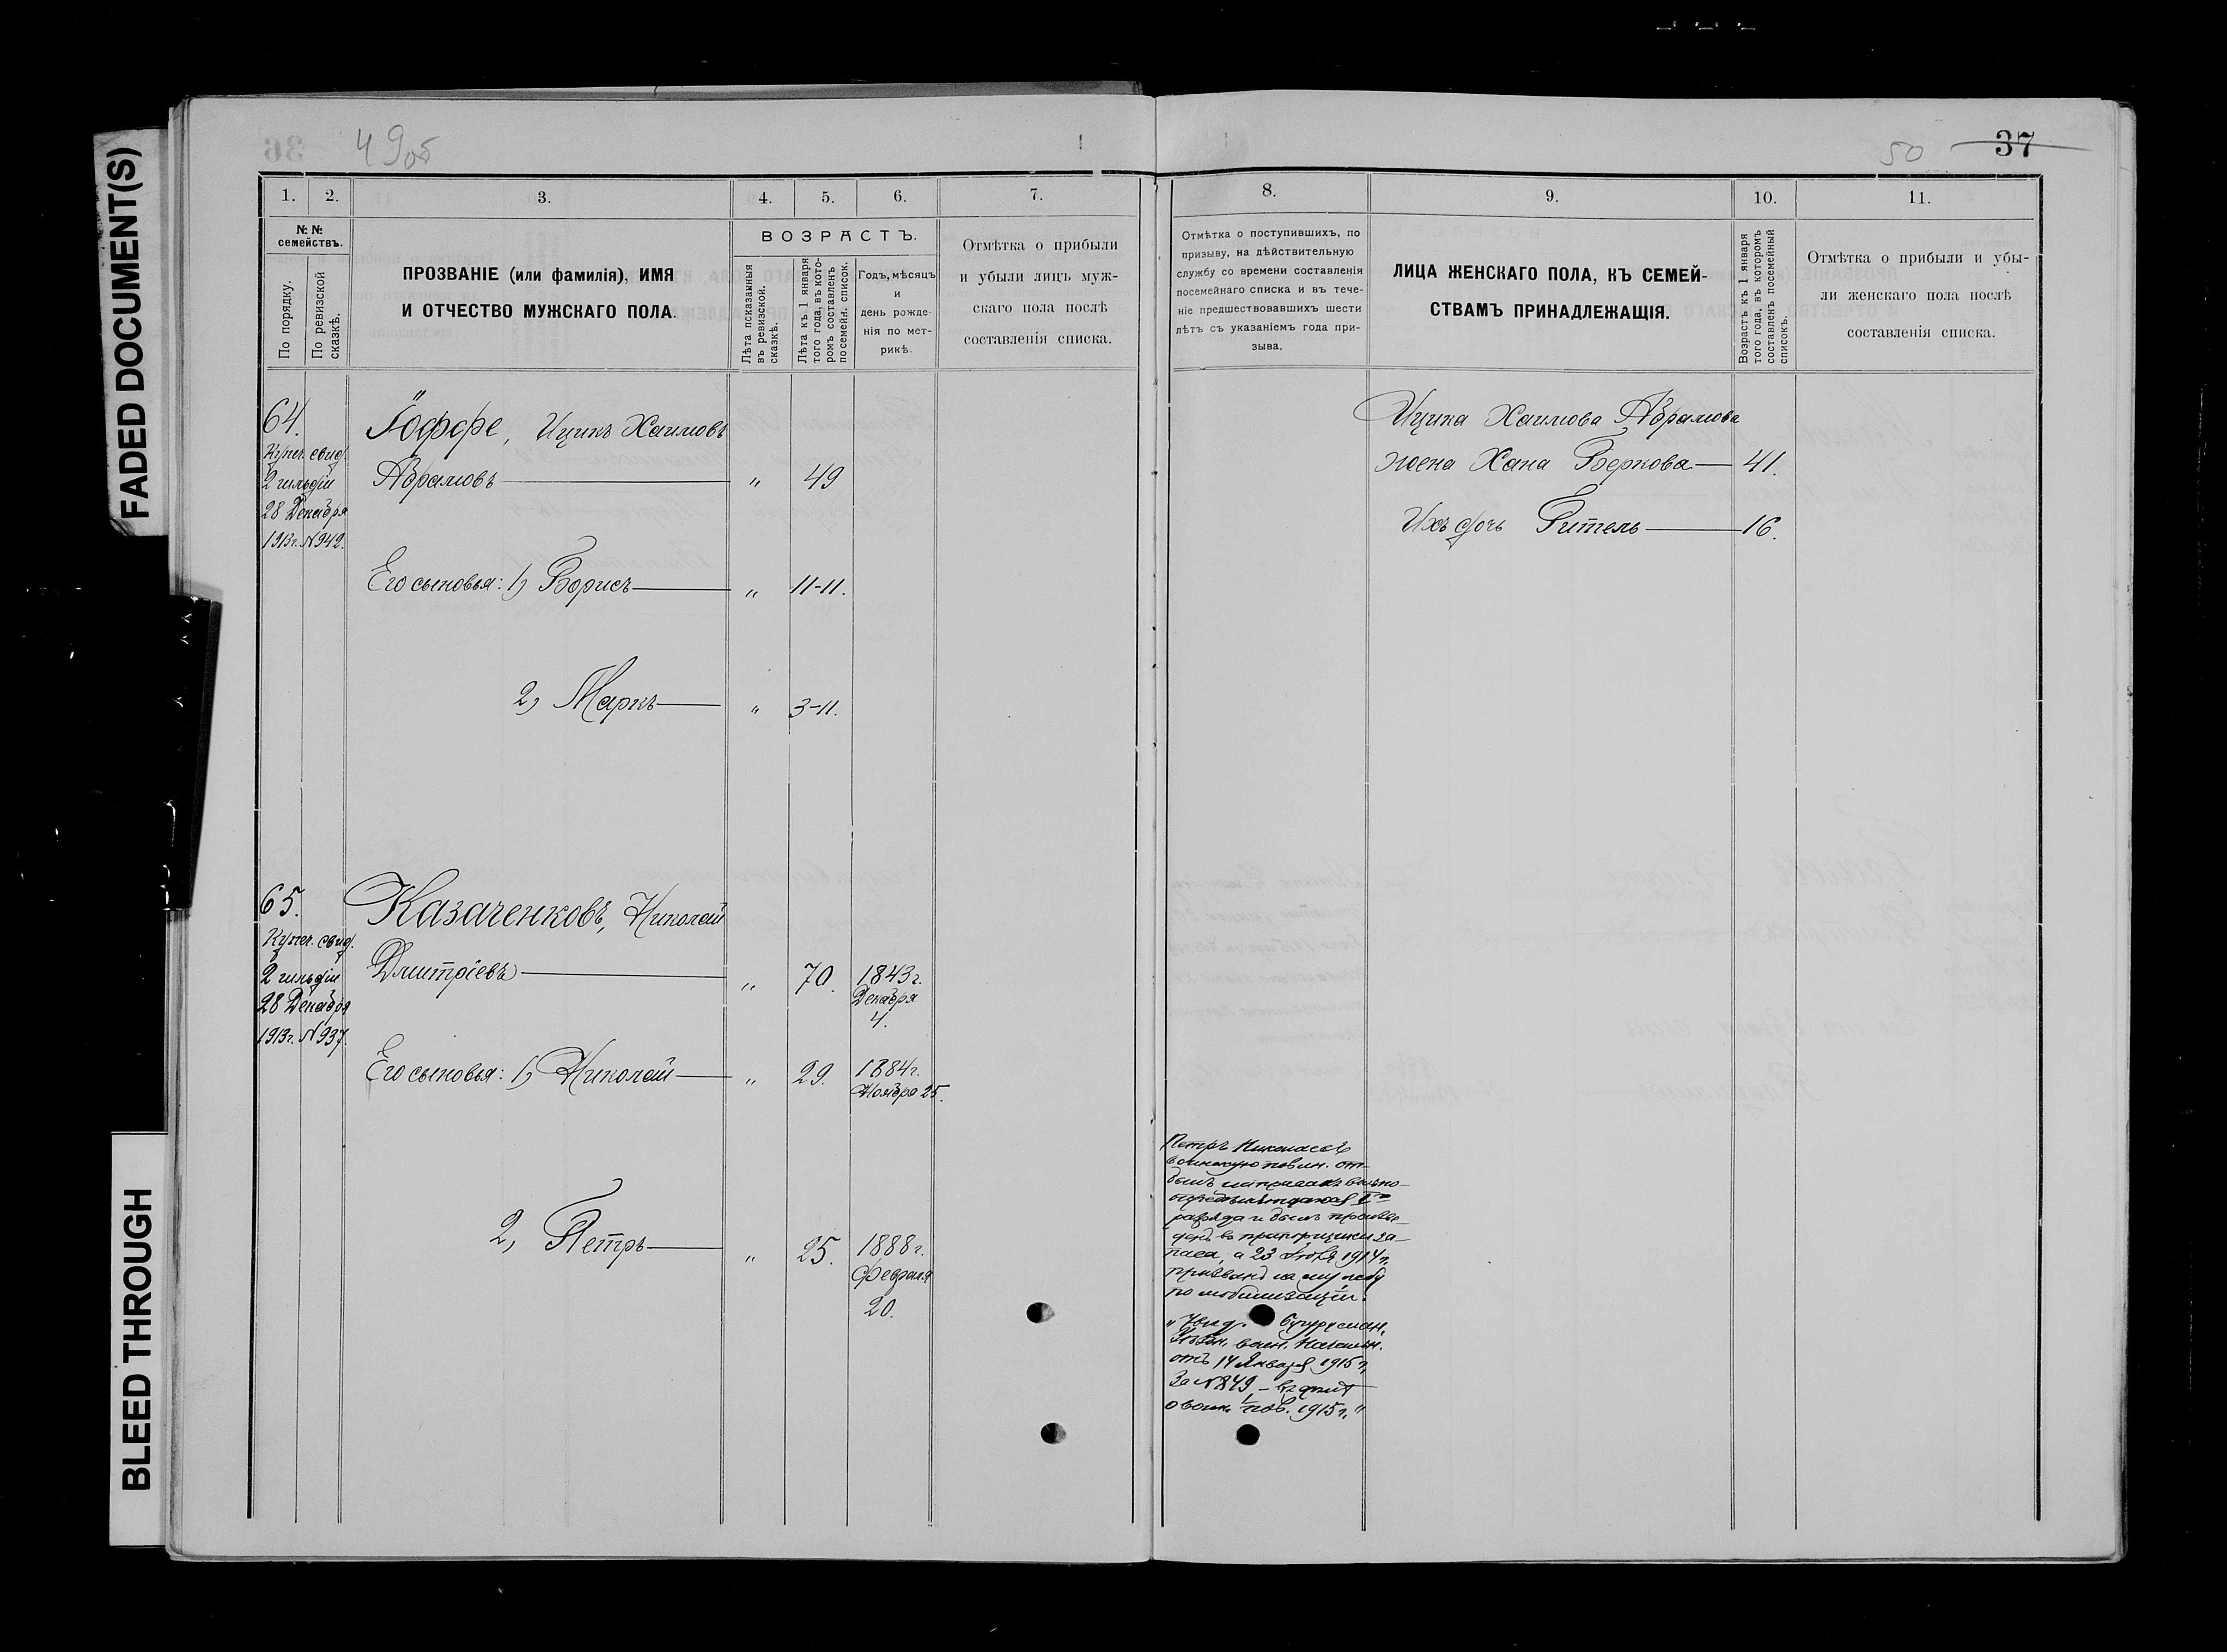 FADED DOCUMENT(S)
BLEED THROUGH
36
49об
50
37
1.
2.
3.
4.
5.
6.
7.
№ №
семействъ.
По порядку.
По ревизской
сказкѣ.
ПРОЗВАНІЕ (или фамилія), ИМЯ
И ОТЧЕСТВО МУЖСКАГО ПОЛА.
ВОЗРАСТЪ.
Лѣта показанныя
въ ревизской.
сказкѣ.
Лѣта къ 1 января
того года, въ кото-
ромъ составленъ
посемейн. список.
Годъ, мѣсяцъ
и
день рожде-
нія по мет-
рикѣ.
Отмѣтка о прибыли
и убыли лицъ муж-
скаго пола послѣ
составленія списка.
64.
Купеч. свид.
2 гильдіи
28 Декабря
1913г. N 942.
Іоффе, Ицикъ Хаимовъ
Абрамовъ — „ 49
Его сыновья: 1) Борисъ — „ 11-11.
2) Маркъ — „ 3-11.
65.
Купеч. свид.
2 гильдіи
28 Декабря
1913г. N 937.
Казаченковъ, Николай
Дмитріевъ — „ 70. 1843г.
Декабря
4.
Его сыновья: 1) Николай — „ 29. 1884г.
Ноября 25.
2) Петръ — „ 25. 1888г.
Февраля
20.
8.
9.
10.
11.
Отмѣтка о поступившихъ, по
призыву, на дѣйствительную
службу со времени составленія
посемейнаго списка и въ тече-
ніе предшествовавшихъ шести
лѣтъ съ указаніемъ года при-
зыва.
ЛИЦА ЖЕНСКАГО ПОЛА, КЪ СЕМЕЙ-
СТВАМЪ ПРИНАДЛЕЖАЩІЯ.
Возрастъ къ 1 января
того года, въ которомъ
составленъ посемейный
списокъ.
Отмѣтка о прибыли и убы-
ли женскаго пола послѣ
составленія списка.
Ицика Хаимова Абрамова
жена Хана Беркова — 41.
Ихъ дочь Гитель — 16.
Петръ Николаевъ
воинскую повин. от-
былъ на правахъ вольно-
опредѣляющагося I го
разряда и былъ произве-
денъ въ прапорщики за-
паса, а 23 Іюля 1914 г.
призванъ на службу
по мобилизаціи.
„Увѣд. Бугурусман.
Уѣздн. воин. Начальн.
отъ 14 Января 1915 г.
за N 849, —
о воин. пов. 1915 г."